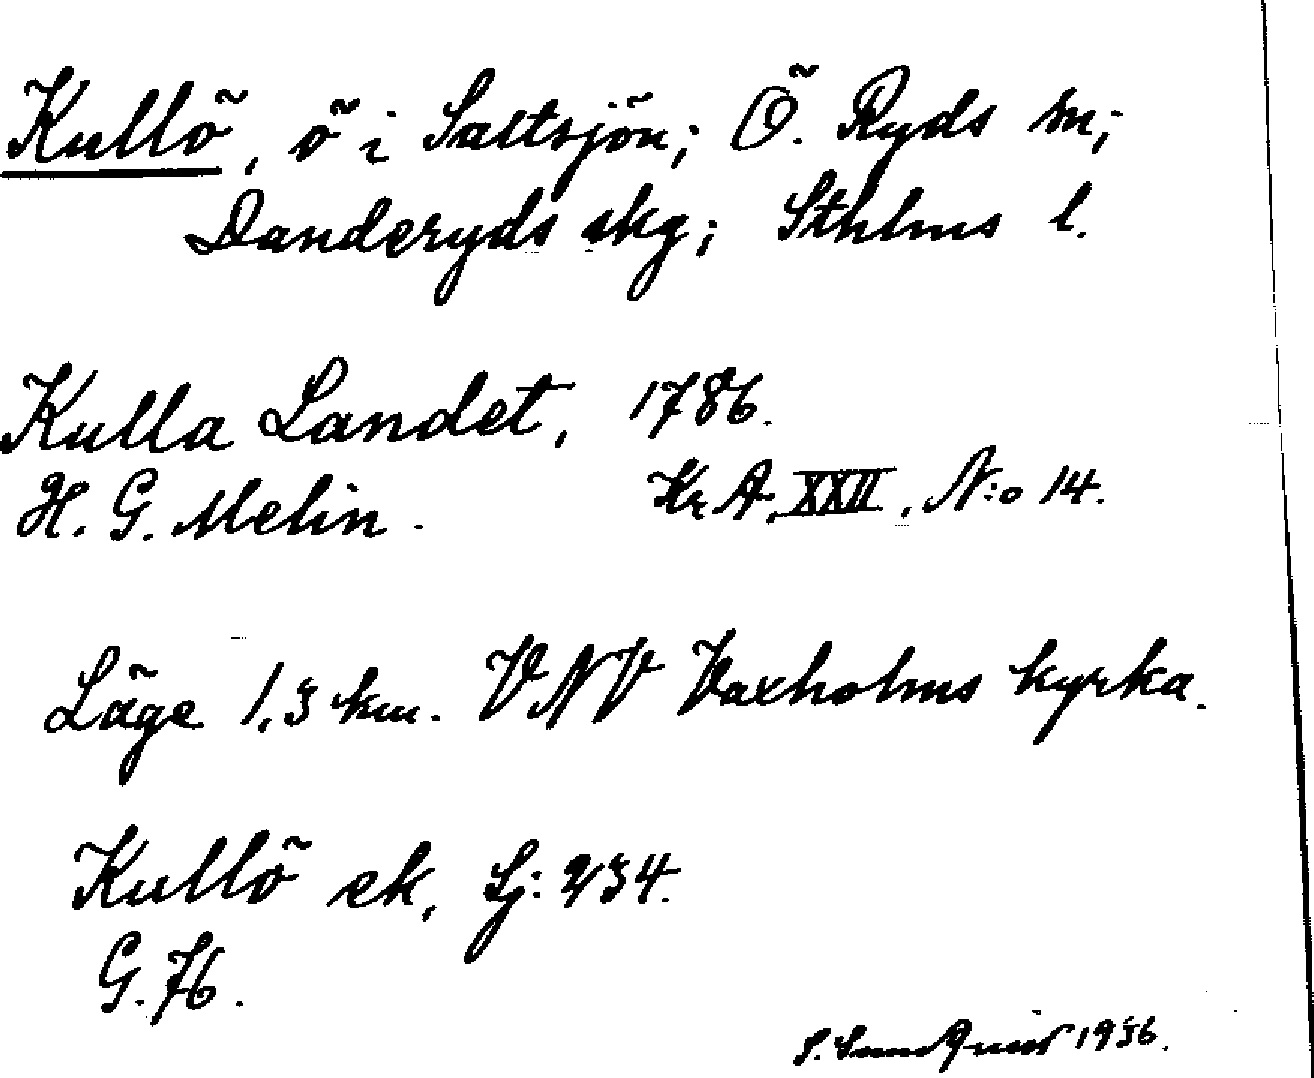 Kullö, ö i Saltsjön; Ö. Ryds sn;
Danderyds skg; Sthlms l.
Kulla Landet, 1786.
H. G. Melin. Kr A, XXII, N:o 14.
Läge 1,3 km. VNV Vaxholms kyrka.
Kullö ek, Sj: 234.
G. 76.
S. Sundquist 1936.